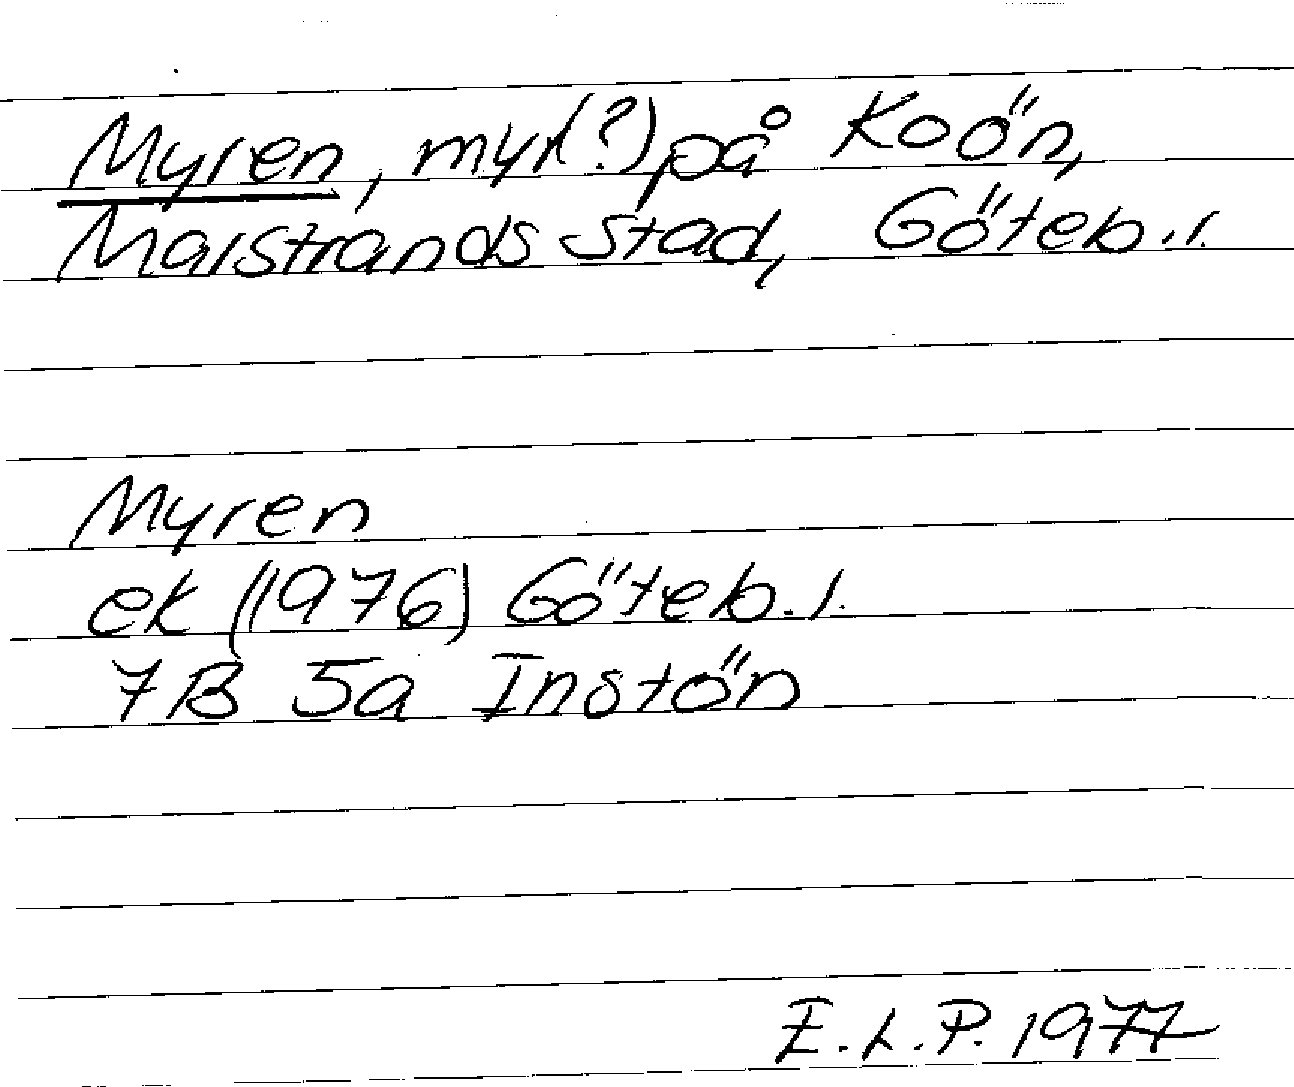 Myren, myr(?) på Koön,
Marstrands stad, Göteb.l.
Myren
ek (1976) Göteb.l.
7B 5a Instön
E.L.P. 1977